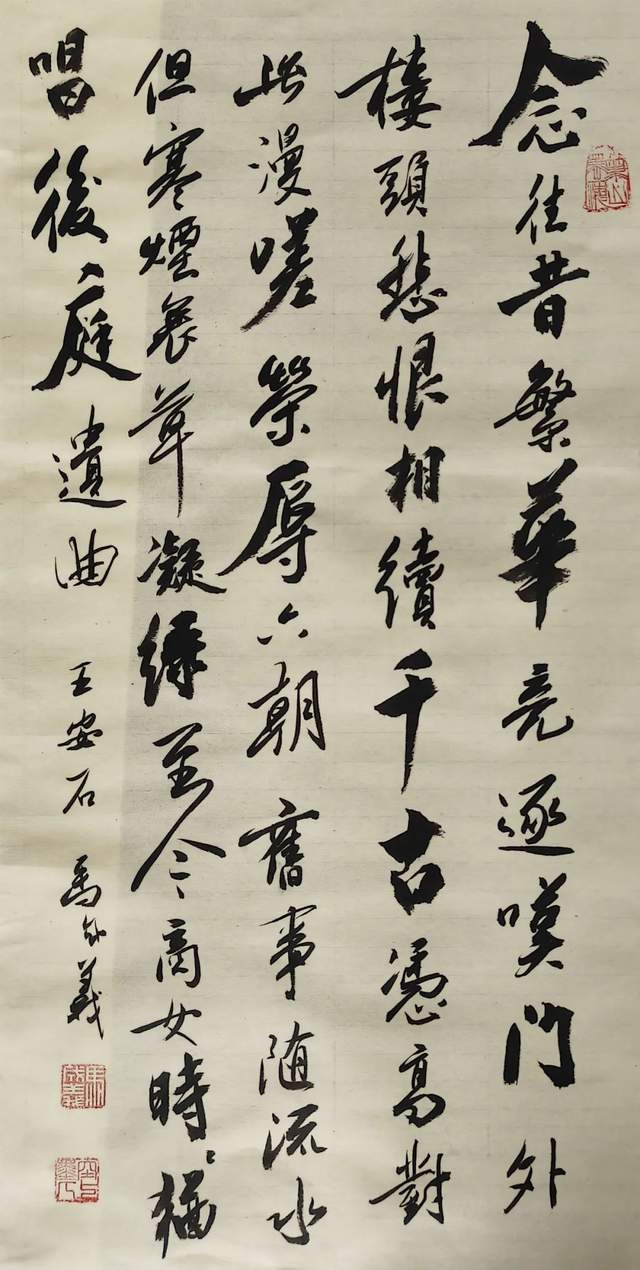 念往昔繁華竞逐嘆門外
樓頭悲恨相續千古憑高對
此漫嗟榮辱六朝舊事随流水
但寒煙衰草凝緑至今商女時〻猶
唱後庭遺曲 王安石 義